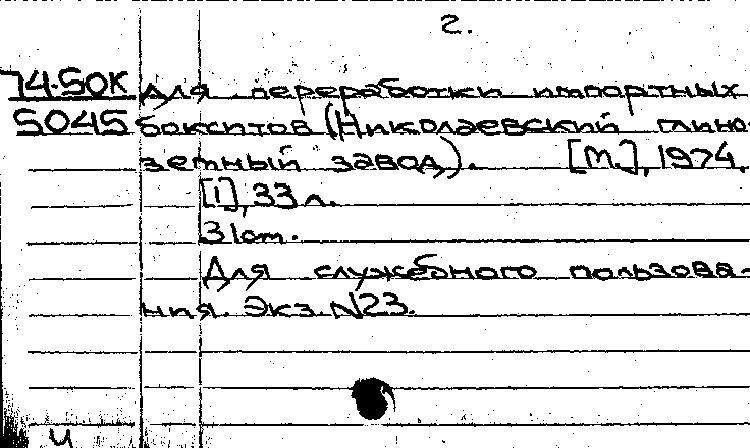 2.
74-50К Для переработки импортных
5045 бокситов (Николаевский глино-
земный завод). [М.], 1974.
[1], 33 л.
31 см.
Для служебного пользова-
ния. Экз. N23.
ч